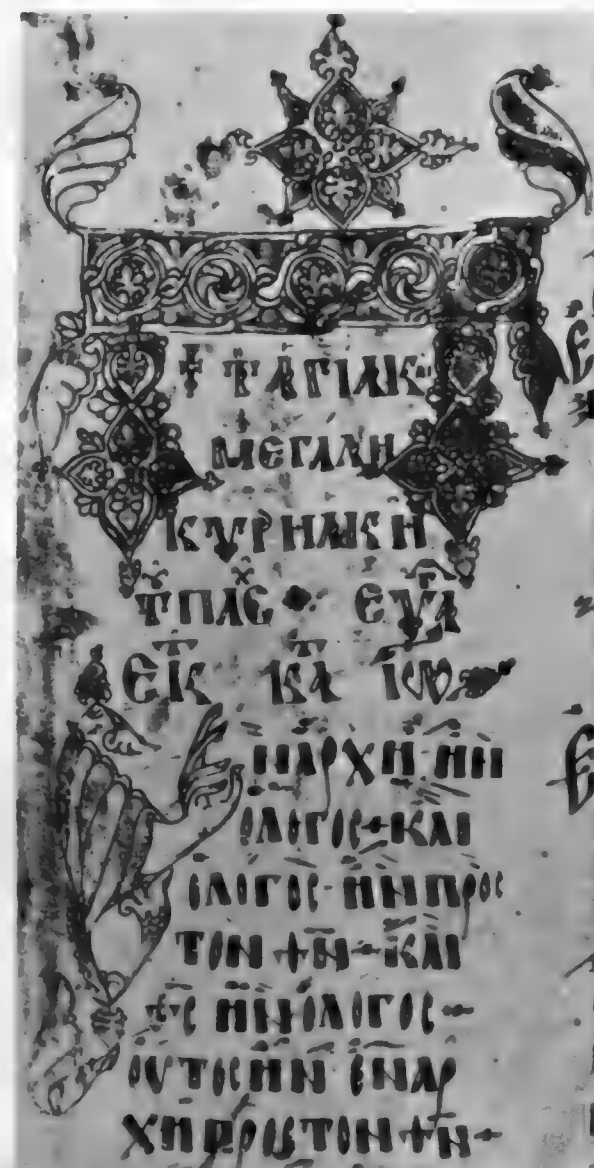 ΤΑΓΙΑΚ
ΜΕΓΑΛΗ
ΚΥΡΗΑΚΗ
ΤΠΑϹ ΕΥΑ
ΕΚ ΚΑ ΙΩ
ΝΑΡΧΗ ΗΝ
ΟΛΟΓΟϹ + ΚΑΙ
ΟΛΟΓΟϹ ΗΝ ΠΡΟϹ
ΤΟΝ ΘΝ + ΚΑΙ
ΘϹ ΗΝ ΟΛΟΓΟϹ
ΟΥΤΟϹ ΗΝ ΕΝ ΑΡ
ΧΗ ΠΡΟϹ ΤΟΝ ΘΝ +